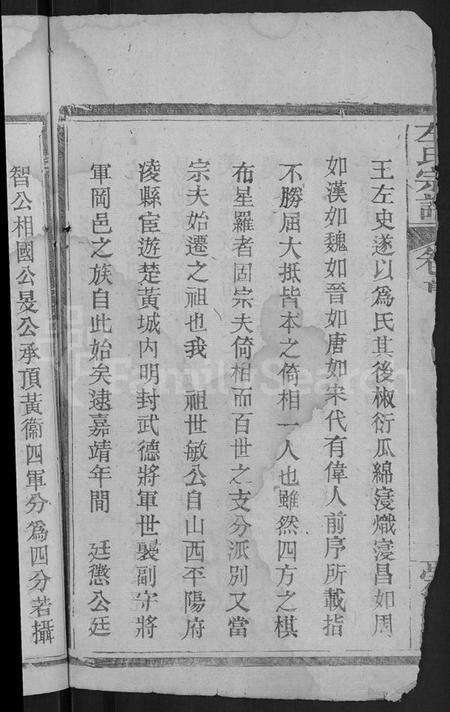 左氏宗譜 卷首
王左史遂以為氏其後椒衍瓜綿寖熾寖昌如周
如漢如魏如晉如唐如宋代有偉人前序所載指
不勝屈大抵皆本之倚相一人也雖然四方之棋
布星羅者固宗夫倚相而百世之支分派別又當
宗夫始遷之祖也我 祖世敏公自山西平陽府
淩縣宦遊楚黃城內明封武德將軍世襲副守將
軍岡邑之族自此始矣逮嘉靖年間 廷懲公廷
智公相國公旻公承頂黃衞四軍分為四分若攝
FamilySearch